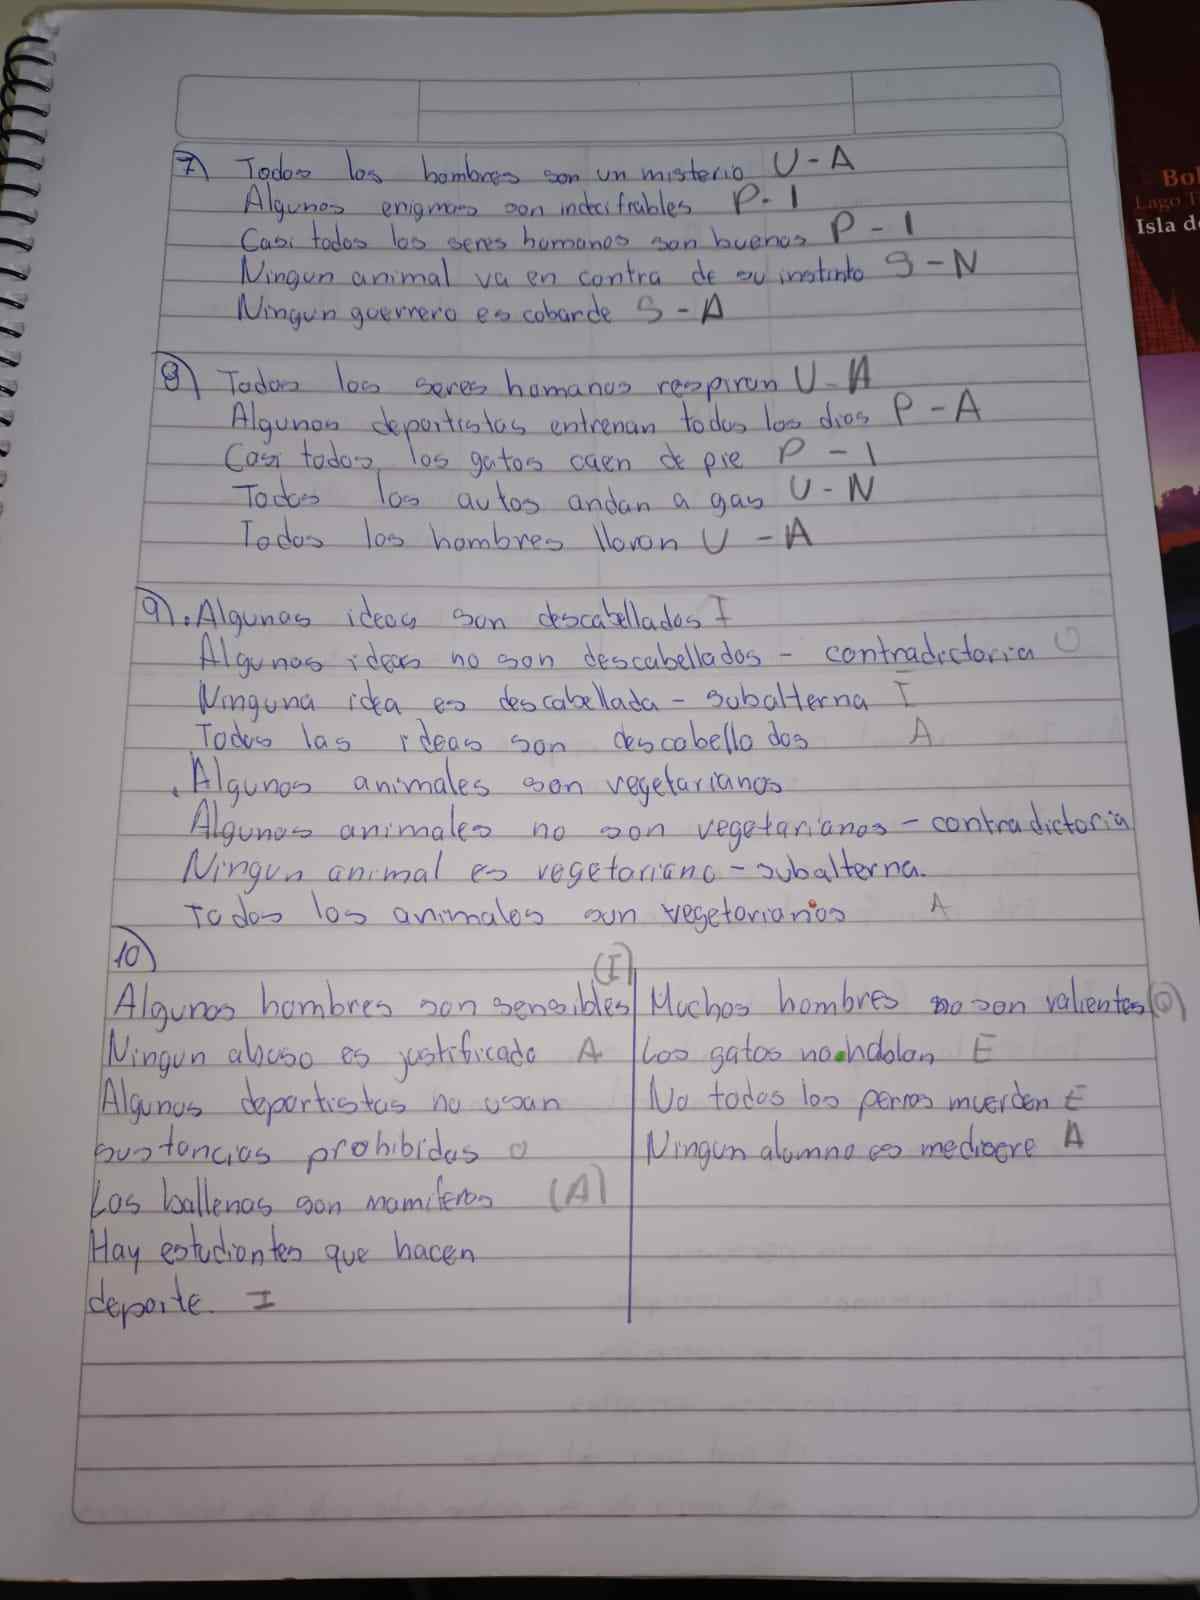 7) Todos los hombres son un misterio U - A
Algunos enigmas son indecifrables P - I
Casi todos los seres humanos son buenos P - I
Ningun animal va en contra de su instinto S - N
Ningun guerrero es cobarde S - A
8) Todos los seres homanos respiran U - A
Algunos deportistas entrenan todos los dias P - A
Casi todos los gatos caen de pie P - I
Todos los autos andan a gas U - N
Todos los hombres lloran U - A
9). Algunas ideas son descabelladas I
Algunas ideas no son descabellados - contradictoria O
Ninguna idea es descabellada - subalterna I
Todas las ideas son descabelladas A
. Algunos animales son vegetarianos
Algunos animales no son vegetarianos - contradictoria
Ningun animal es vegetariano - subalterna.
Todos los animales son vegetarianos A
10)
Algunos hombres son sensibles (I)
Ningun abuso es justificado A
Algunos deportistas no usan
sustancias prohibidas O
Las ballenas son mamiferos (A)
Hay estudiantes que hacen
deporte. I
Muchos hombres no son valientes (O)
Los gatos no E
No todos los perros muerden E
Ningun alumno es mediocre A
Bol
Lago T
Isla de